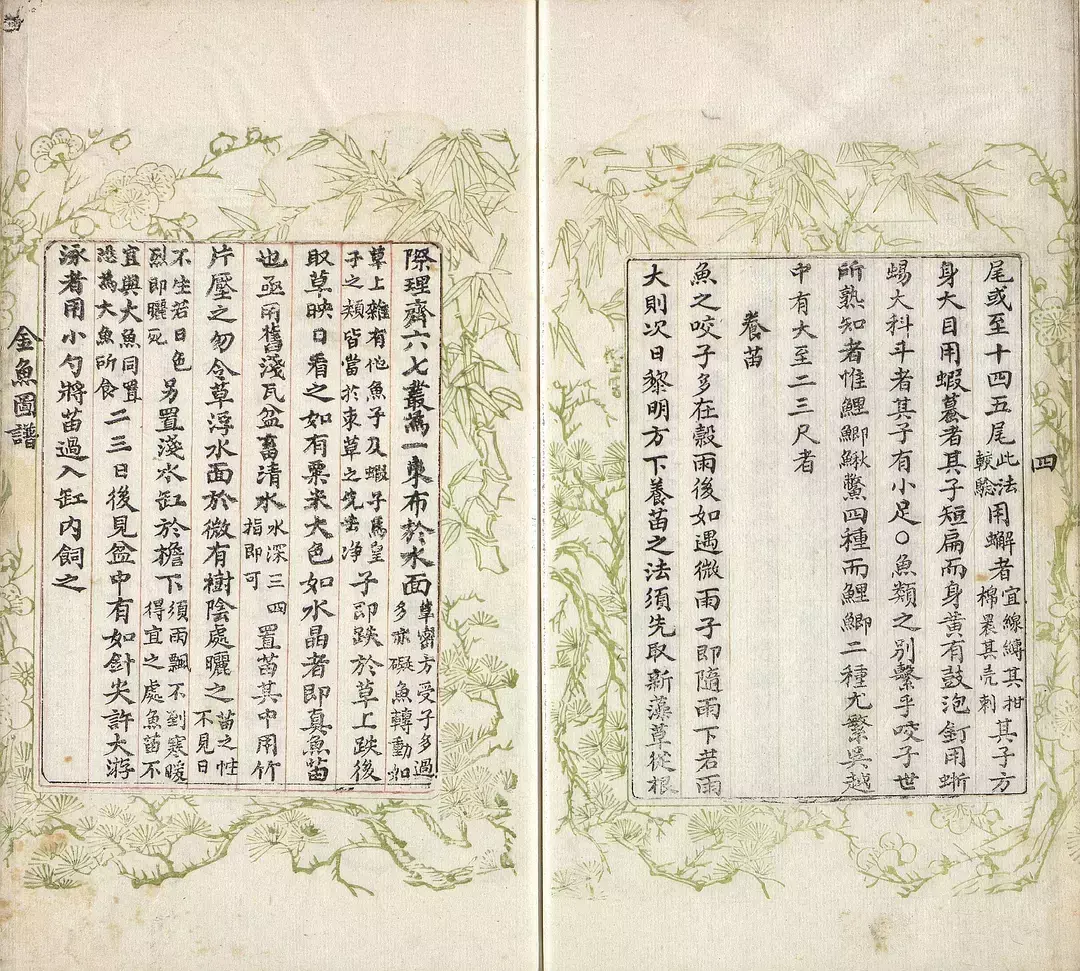 四
尾或至十四五尾此法較驗用蠏者宜線縛其拑棉褁其壳刺其子方
身大目用蝦蟇者其子短扁而身黄有鼓泡釘用蜥
蜴大科斗者其子有小足〇魚類之別繫乎咬子世
所熟知者惟鯉鯽鰍鱉四種而鯉鯽二種尤繁吳越
中有大至二三尺者
養苗
魚之咬子多在穀雨後如遇微雨子即隨雨下若雨
大則次日黎明方下養苗之法須先取新藻草從根
際理齊六七叢為一束布於水面草密方受子多過多亦礙魚轉動如
草上雜有他魚子及蝦子馬皇子之類皆當於束草之先去净子即跌於草上跌後
取草映日看之如有粟米大色如水晶者即真魚苗
也亟用舊淺瓦盆畜清水水深三四指即可置苗其中用竹
片壓之勿令草浮水面於微有樹陰處曬之苗之性不見日
不生若日色烈即曬死另置淺水缸於檐下須雨飄不到寒暖得宜之處魚苗不
宜與大魚同置恐為大魚所食二三日後見盆中有如針尖許大游
泳者用小勺將苗過入缸内飼之
金魚圖譜